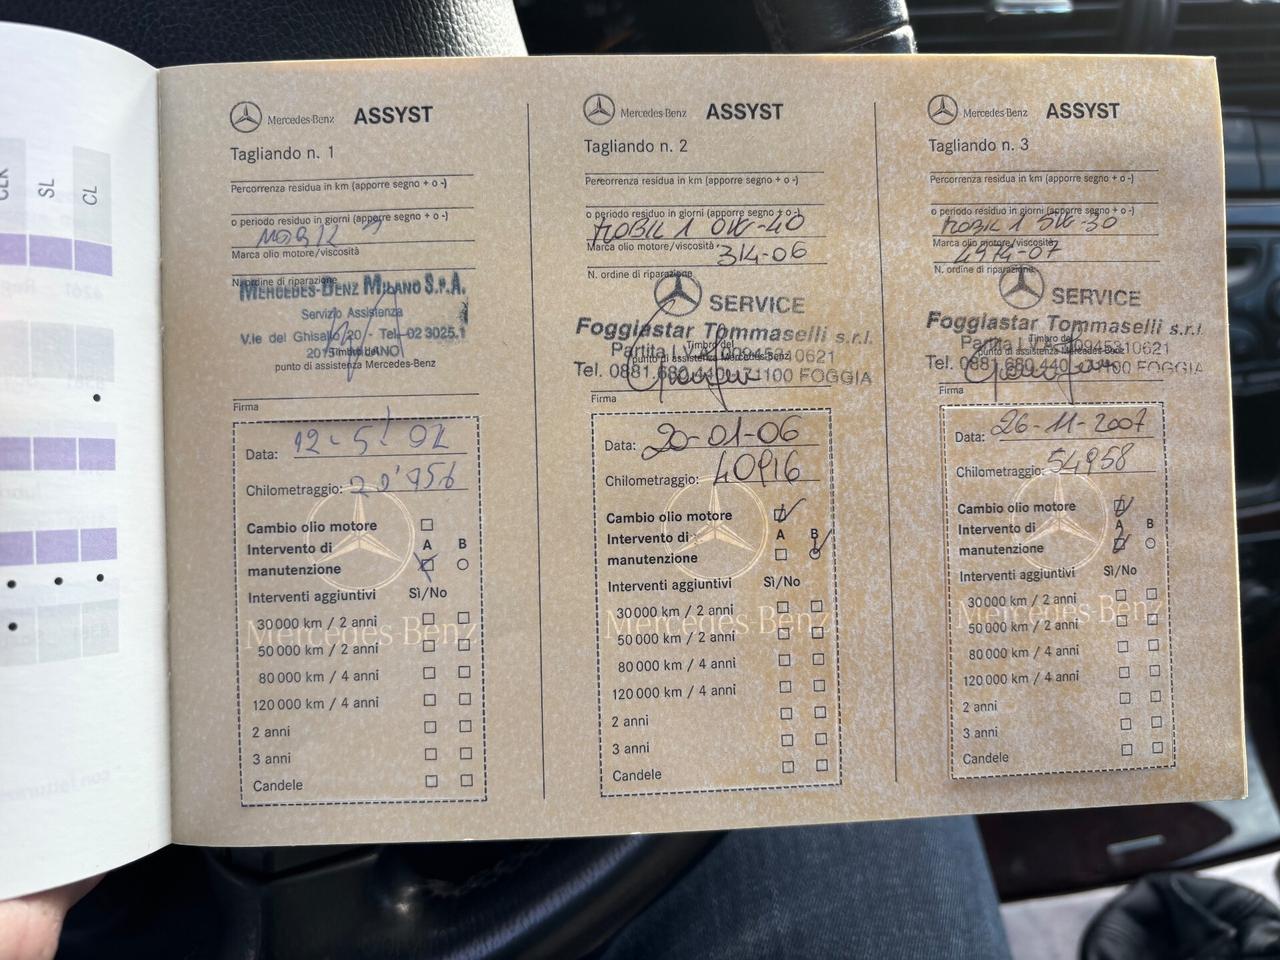 CLK
SL
CL
Mercedes-Benz ASSYST
Tagliando n. 1
Percorrenza residua in km (apporre segno + o -)
o periodo residuo in giorni (apporre segno + o -)
Marca olio motore/viscosità
N. ordine di riparazione
MERCEDES-BENZ MILANO S.P.A.
Servizio Assistenza
V.le del Ghisallo 20 - Tel. 02 3025.1
Timbro del
punto di assistenza Mercedes-Benz
Firma
Data: 12-5-02
Chilometraggio: 20'956
Cambio olio motore
Intervento di A B
manutenzione
Interventi aggiuntivi Sì/No
30000 km / 2 anni
50000 km / 2 anni
80000 km / 4 anni
120000 km / 4 anni
2 anni
3 anni
Candele
Mercedes-Benz
Mercedes-Benz ASSYST
Tagliando n. 2
Percorrenza residua in km (apporre segno + o -)
o periodo residuo in giorni (apporre segno + o -)
MOBIL 1 0W-40
Marca olio motore/viscosità
314-06
N. ordine di riparazione
SERVICE
Foggiastar Tommaselli s.r.l.
Timbro del
Partita I.V.A. 00945310621
punto di assistenza Mercedes-Benz
Tel. 0881.680.440 - 71100 FOGGIA
Firma
Data: 20-01-06
Chilometraggio: 40916
Cambio olio motore
Intervento di A B
manutenzione
Interventi aggiuntivi Sì/No
30000 km / 2 anni
50000 km / 2 anni
80000 km / 4 anni
120000 km / 4 anni
2 anni
3 anni
Candele
Mercedes-Benz
Mercedes-Benz ASSYST
Tagliando n. 3
Percorrenza residua in km (apporre segno + o -)
o periodo residuo in giorni (apporre segno + o -)
MOBIL 1 5W-30
Marca olio motore/viscosità
4974-07
N. ordine di riparazione
SERVICE
Foggiastar Tommaselli s.r.l.
Timbro del
Partita I.V.A. 00945310621
punto di assistenza Mercedes-Benz
Tel. 0881.680.440 - 71100 FOGGIA
Firma
Data: 26-11-2007
Chilometraggio: 54958
Cambio olio motore
Intervento di A B
manutenzione
Interventi aggiuntivi Sì/No
30000 km / 2 anni
50000 km / 2 anni
80000 km / 4 anni
120000 km / 4 anni
2 anni
3 anni
Candele
Mercedes-Benz